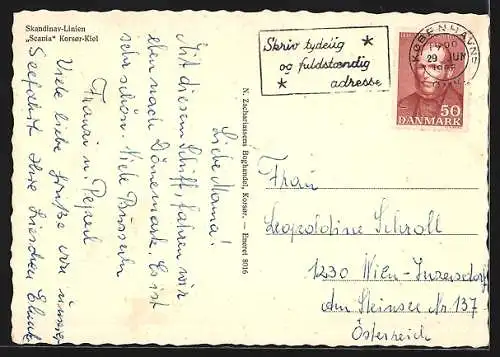 Skandinav-Linien
„Scania“ Korsør-Kiel
Liebe Mama!
Mit diesem Schiff fahren wir
eben nach Dänemark. Es ist
sehr schön. Viele Busserln
Franzi u.
Viele liebe Grüße von unserer
Seefahrt Ihre
N. Zachariassens Boghandel, Korsør. — Eneret 8016
Skriv tydelig
og fuldstændig
adresse
KØBENHAVN
29 JUN
50
DANMARK
Frau
Leopoldine Schroll
1230 Wien-Inzersdorf
Am Steinsee Nr 137
Österreich